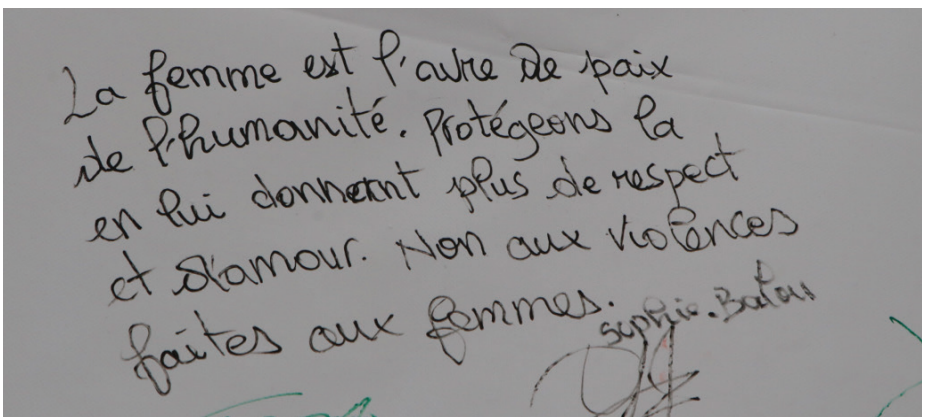 La femme est l'avre de paix
de l'humanité. Protégeons la
en lui donnant plus de respect
et d'amour. Non aux violences
faites aux femmes.
Sophie.